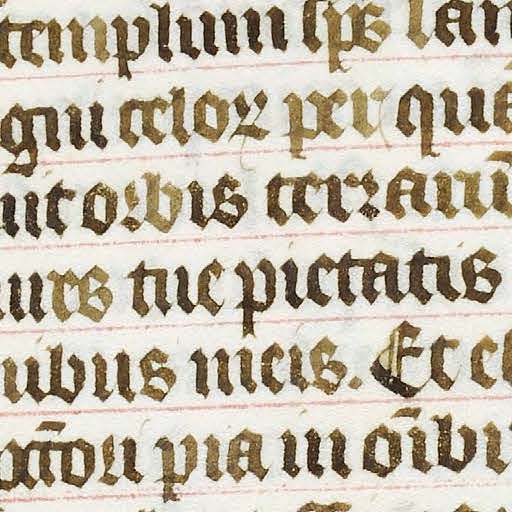 templum sps san
gni celoꝝ per quā
uit orbis terrarū
ures tue pietatis
ibus meis. Et e
pia in oību